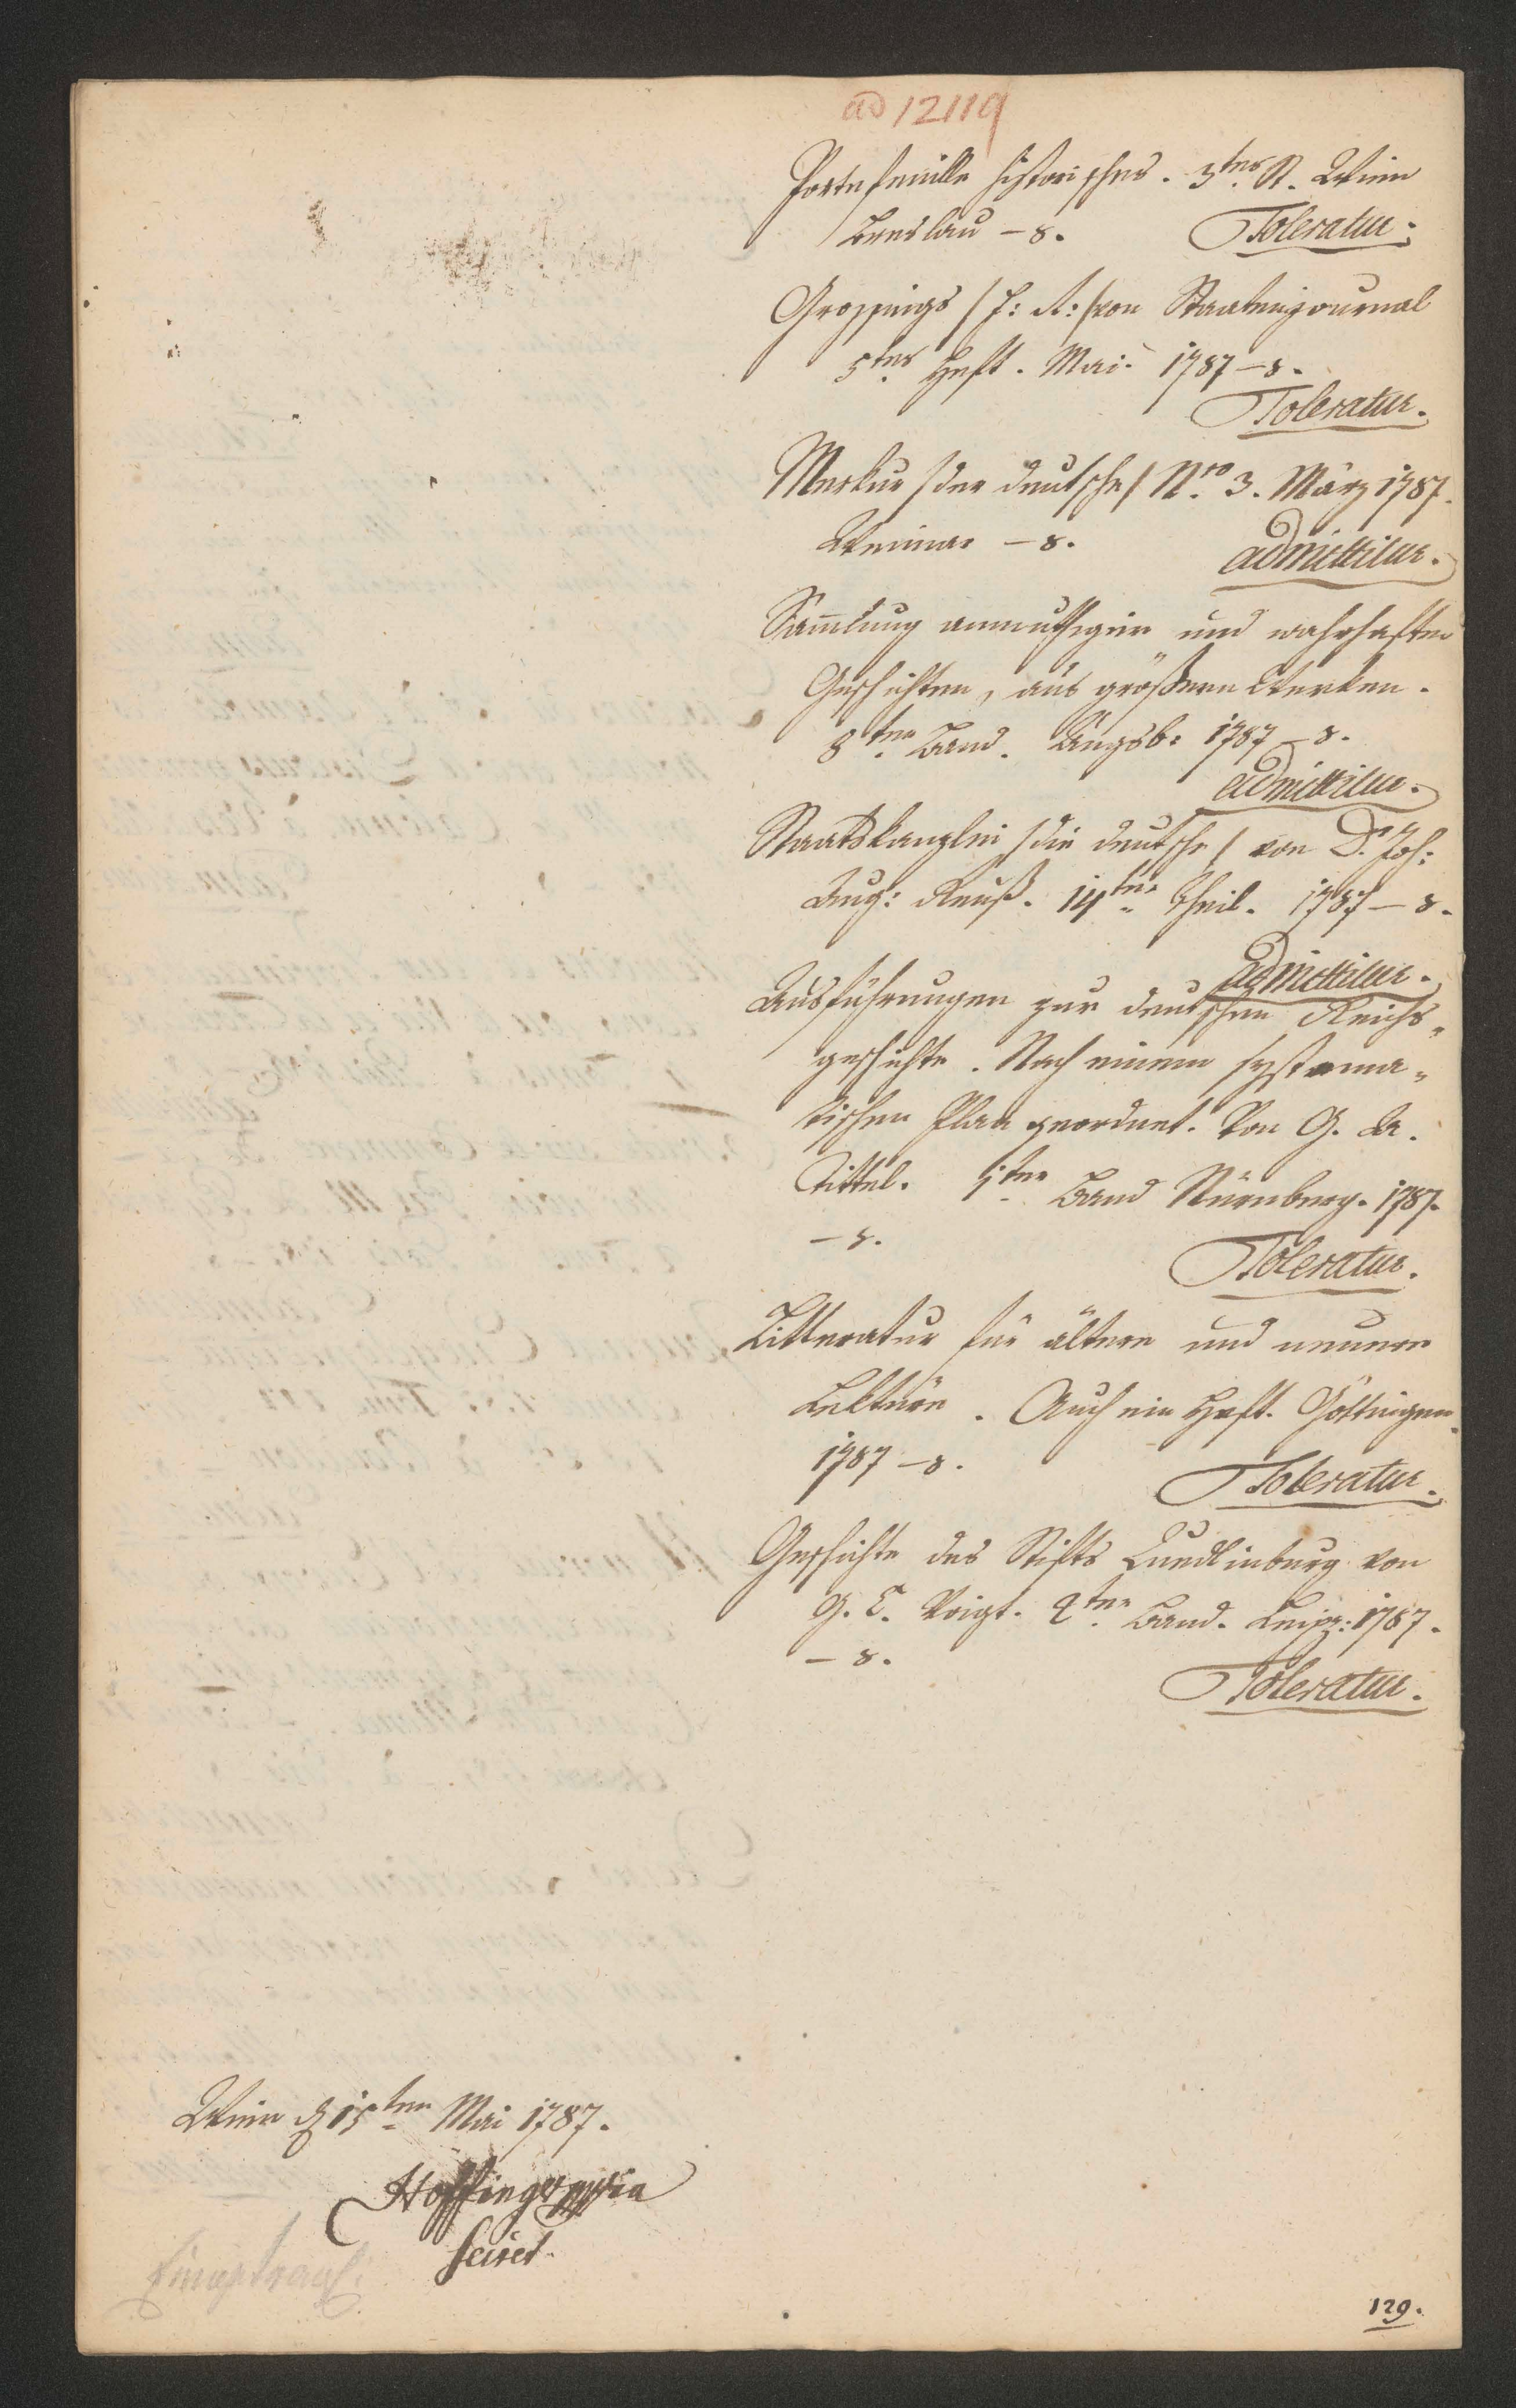 ad 12119
Portefeuille historisches. 3tes St. Wien
Breslau – 8. Toleratur.
Grossings /F: R:/ von Staatenjournal
5tes Heft. Mai. 1787 – 8.
Toleratur.
Merkur /der deutsche/ Nro 3. März 1787.
Weimar – 8. admittitur.
Sam̅lung anmuthiger und wahrhafter
Geschichten, aus größern Werken.
8ter Band. Augsb: 1787 – 8.
admittitur.
Staatskanzlei /die deutsche/ von Dr. Joh:
Aug: Reuß. 14ter Theil. 1787 – 8.
admittitur.
Ausführungen zur deutschen Reichs„
geschichte. Nach einem systema„
tischen Plan geordnet. Von G. A.
Tittel. 1ter Band Nürnberg. 1787.
– 8.
Toleratur.
Litteratur für ältere und neuere
Lektüre. Auch ein Heft. Göttingen.
1787 – 8.
Toleratur.
Geschichte des Stifts Quedlinburg von
G. C. Voigt. 2ter Band. Leipz: 1787.
– 8.
Toleratur.
Wien d 15ten Mai 1787.
Hoffinger mpria
Secret.
129.